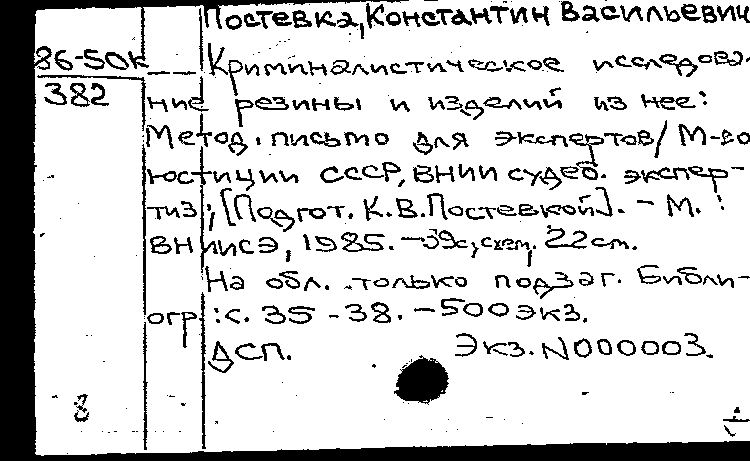 Постевка, Константин Васильевич
86-50к
382
Криминалистическое исследова-
ние резины и изделий из нее:
Метод. письмо для экспертов/ М-во
юстиции СССР, ВНИИ судеб. экспер-
тиз; [Подгот. К.В.Постевкой]. - М. :
ВНИИСЭ, 1985. - 39с, схем, 22см.
На обл. только подзаг. Библи-
огр.: с. 35 - 38. - 500экз.
ДСП. Экз. N000003.
8